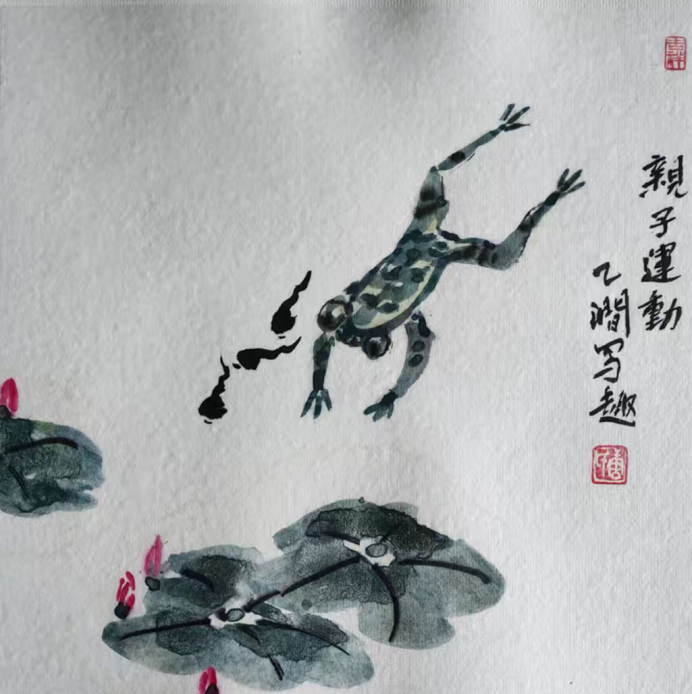 親子運動
乙澗写趣